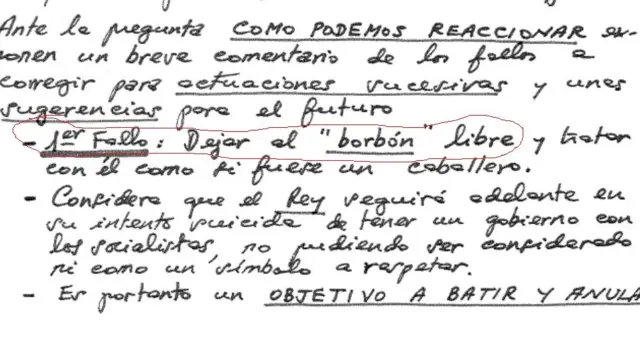 Ante la pregunta COMO PODEMOS REACCIONAR ex-
ponen un breve comentario de los fallos a
corregir para actuaciones sucesivas y unas
sugerencias para el futuro
- 1er Fallo: Dejar al "borbón" libre y tratar
con él como si fuese un caballero.
- Considera que el Rey seguirá adelante en
su intento suicida de tener un gobierno con
los socialistas, no pudiendo ser considerado
ni como un símbolo a respetar.
- Es portanto un OBJETIVO A BATIR Y ANULA